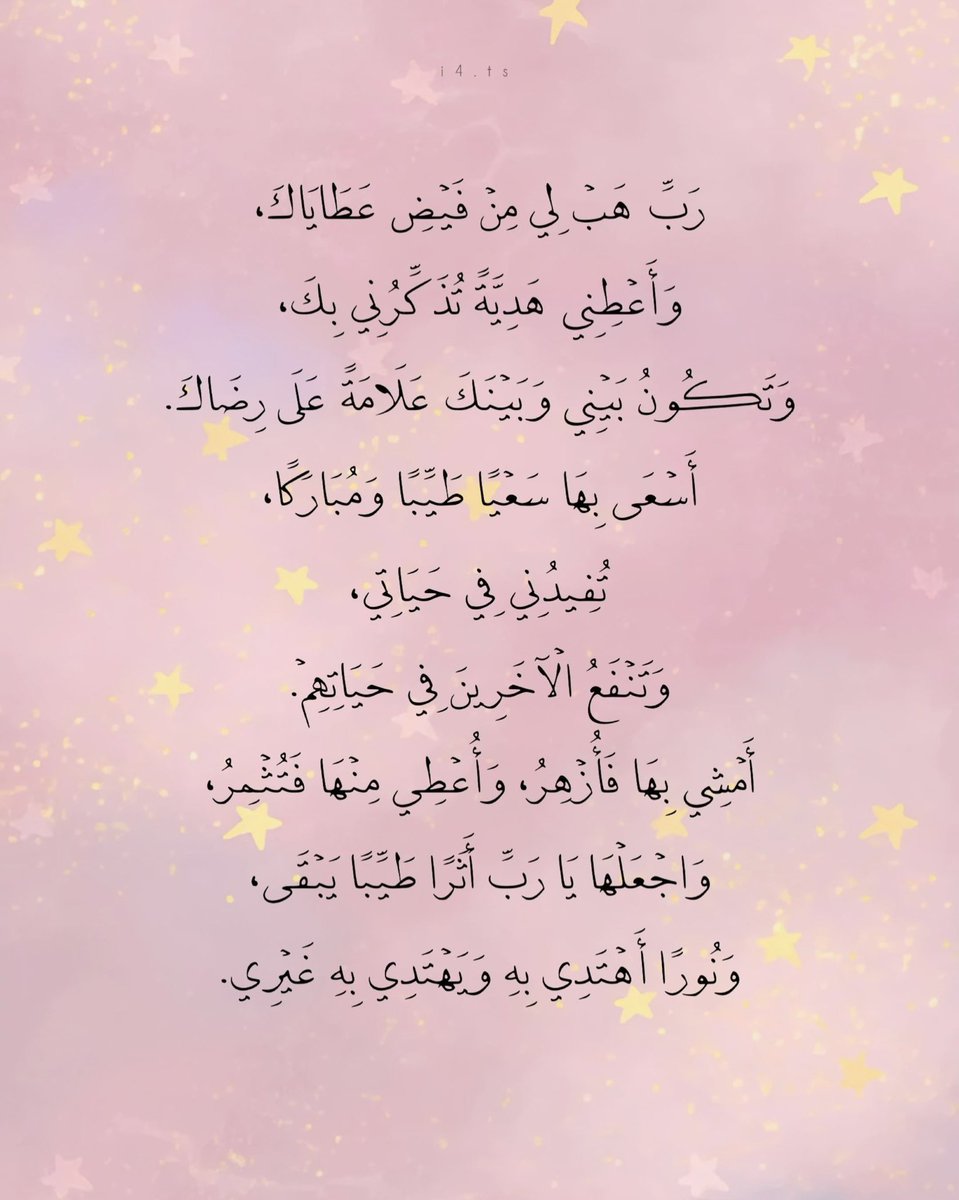 i4.ts
رَبِّ هَبْ لِي مِنْ فَيْضِ عَطَايَاكَ،
وَأَعْطِنِي هَدِيَّةً تُذَكِّرُنِي بِكَ،
وَتَكُونُ بَيْنِي وَبَيْنَكَ عَلَامَةً عَلَى رِضَاكَ.
أَسْعَى بِهَا سَعْيًا طَيِّبًا وَمُبَارَكًا،
تُفِيدُنِي فِي حَيَاتِي،
وَتَنْفَعُ الْآخَرِينَ فِي حَيَاتِهِمْ.
أَمْشِي بِهَا فَأُزْهِرُ، وَأُعْطِي مِنْهَا فَتُثْمِرُ،
وَاجْعَلْهَا يَا رَبِّ أَثَرًا طَيِّبًا يَبْقَى،
وَنُورًا أَهْتَدِي بِهِ وَيَهْتَدِي بِهِ غَيْرِي.